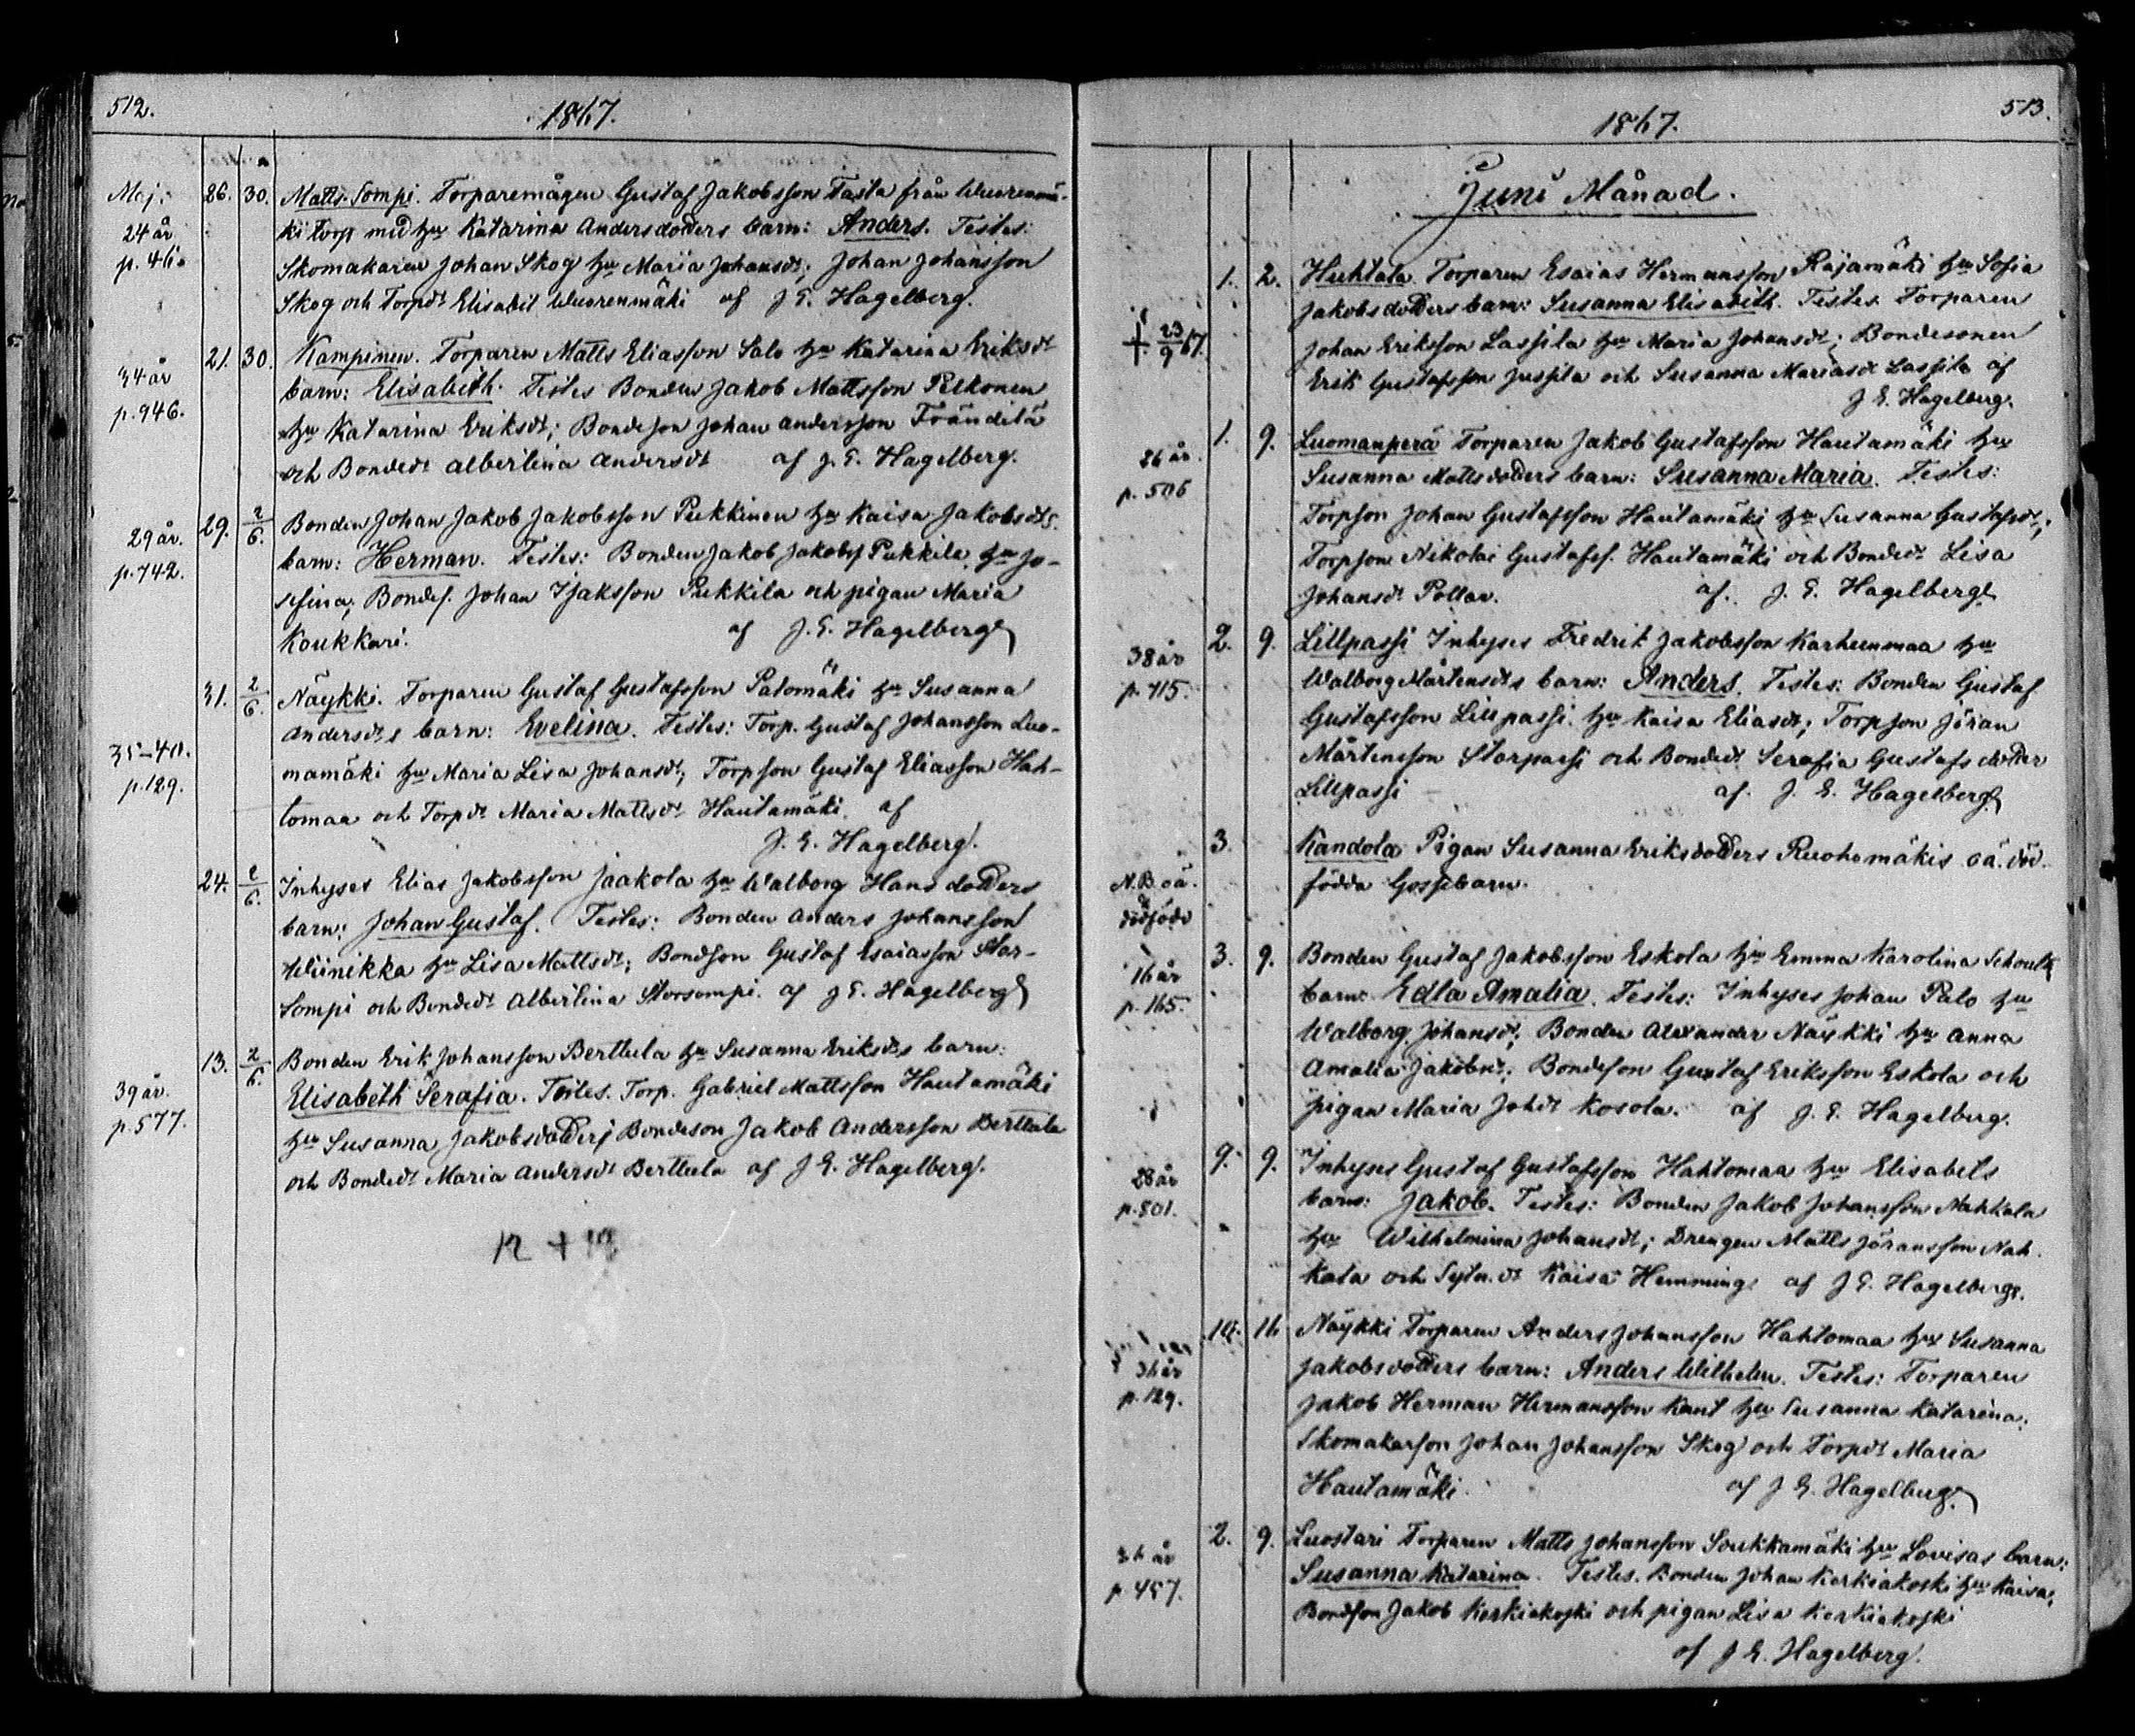 512.
1867.
Maj: 26. 30. Matts-Sompi. Torparemågen Gustaf Jakobsson Tasta från Wuorenmä-
24 år ki torp med hu Katarina Andersdotters barn: Anders. Testes:
p. 46. Skomakaren Johan Skog hu Maria Johansdt; Johan Johansson
Skog och Torpdt Elisabet Wuorenmäki af J E. Hagelberg.
21. 30. Kampinen. Torparen Matts Eliasson Salo hu Katarina Eriksdt
34 år barn: Elisabeth. Testes Bonden Jakob Mattsson Pelkonen
p. 946. hu Katarina Eriksdt; Bondeson Johan Andersson Frändilä
och Bondedt Albertina Andersdt af J. E. Hagelberg.
29. 2/6. Bonden Johan Jakob Jakobsson Pukkinen hu Kaisa Jakobsdts
29 år. barn: Herman. Testes: Bonden Jakob Jakobss Pukkila, hu Jo-
p. 742. sefina; Bondes. Johan Isaksson Pukkila och pigan Maria
Koukkari. af J. E. Hagelberg
31. 2/6. Näykki. Torparen Gustaf Gustafsson Palomäki hu Susanna
Andersdts barn: Evelina. Testes: Torp. Gustaf Johansson Luo-
35-40. mamäki hu Maria Lisa Johansdt; Torpson Gustaf Eliasson Hah-
p. 129. tomaa och Torpdt Maria Mattsdt Hautamäki. af
J. E. Hagelberg.
24. 2/6. Inhyses Elias Jakobsson Jaakola hu Walborg Hans dotters
barn: Johan Gustaf. Testes: Bonden Anders Johansson
Wiinikka hu Lisa Mattsdt; Bondson Gustaf Esaiasson Stor-
Sompi och Bondedt Albertina Storsompi. af J E. Hagelberg
13. 2/6. Bonden Erik Johansson Berttula hu Susanna Eriksdts barn:
39 år. Elisabeth Serafia. Testes. Torp. Gabriel Mattsson Hautamäki
p. 577. hu Susanna Jakobsdotter; Bondeson Jakob Andersson Berttula
och Bondedt Maria Andersdt Berttula af J E. Hagelberg.
513.
1867.
Juni Månad.
1. 2. Huhtala. Torparen Esaias Hermansson Rajamäki hu Sofia
Jakobsdotters barn: Susanna Elisabeth. Testes. Torparen
† 23/9 67. Johan Eriksson Lassila hu Maria Johansdt; Bondesonen
Erik Gustafsson Jussila och Susanna Mariasdt Lassila af
J E. Hagelberg.
1. 9. Luomanperä Torparen Jakob Gustafsson Hautamäki hu
26 år. Susanna Mattsdotters barn: Susanna Maria. Testes:
p. 506 Torpson Johan Gustafsson Hautamäki hu Susanna Gustafsdt;
Torpson Nikolai Gustafss. Hautamäki och Bondedt Lisa
Johansdt Pollar. af. J. E. Hagelberg
2. 9. Lillpassi Inhyses Fredrik Jakobsson Karhunmaa hu
38 år Walborg Mårtensdts barn: Anders. Testes: Bonden Gustaf
p. 715. Gustafsson Lillpassi hu Kaisa Eliasdt; Torpson Jöran
Mårtensson Storpassi och Bondedt Serafia Gustafs dotter
Lillpassi af. J. E. Hagelberg
3. Kandola Pigan Susanna Eriksdotters Ruohomäkis oä. död-
N.B. oä. dödfödd födda Gossebarn.
3. 9. Bonden Gustaf Jakobsson Eskola hu Emma Karolina Schoultz
16 år barn: Edla Amalia. Testes: Inhyses Johan Palo hu
p. 165. Walborg Johansdt; Bonden Alexander Näykki hu Anna
Amalia Jakobsdt; Bondeson Gustaf Eriksson Eskola och
pigan Maria Johdt Kosola. af J. E. Hagelberg.
9. 9. Inhyses Gustaf Gustafsson Hahtomaa hu Elisabets
28 år barn: Jakob. Testes: Bonden Jakob Johansson Nahkala
p. 801. hu Wilhelmina Johansdt; Drengen Matts Jöransson Nah-
kala och Sytn. dt Kaisa Hemming. af J E. Hagelberg.
10. 16 Näykki Torparen Anders Johansson Hahtomaa hu Susanna
36 år Jakobsdotters barn: Anders Wilhelm. Testes: Torparen
p. 129. Jakob Herman Hermansson Kant hu Susanna Katarina;
Skomakarson Johan Johansson Skog och Torpdt Maria
Hautamäki. af J E. Hagelberg.
2. 9. Luostari Torparen Matts Johansson Soukkamäki hu Lovisas barn:
36 år Susanna Katarina. Testes. Bonden Johan Korkiakoski hu Kaisa;
p. 457. Bondson Jakob Korkiakoski och pigan Lisa Korkiakoski
af J E. Hagelberg.